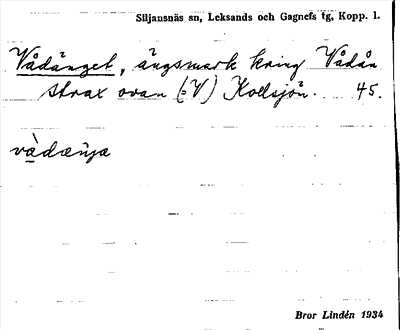 Siljansnäs sn, Leksands och Gagnefs tg, Kopp. l.
Vådänget, ängsmark kring Vådån
strax ovan (:V) Kollsjön. 45.
vàdæŋa
Bror Lindén 1934